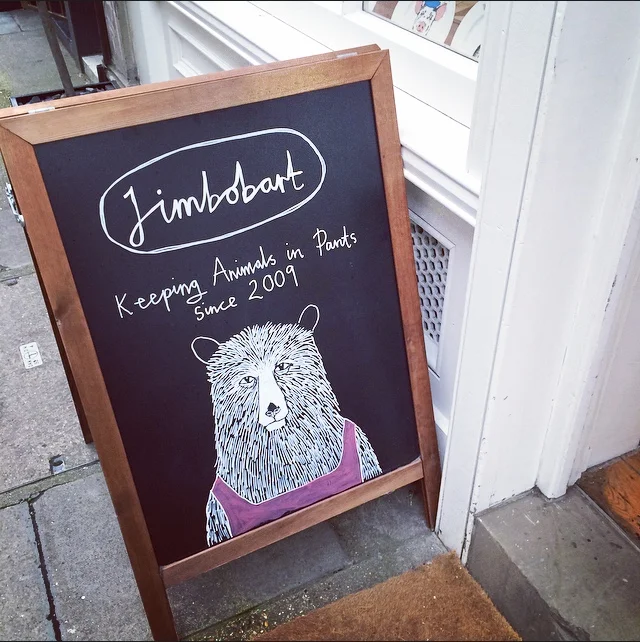 Jimbobart
Keeping Animals in Pants
Since 2009